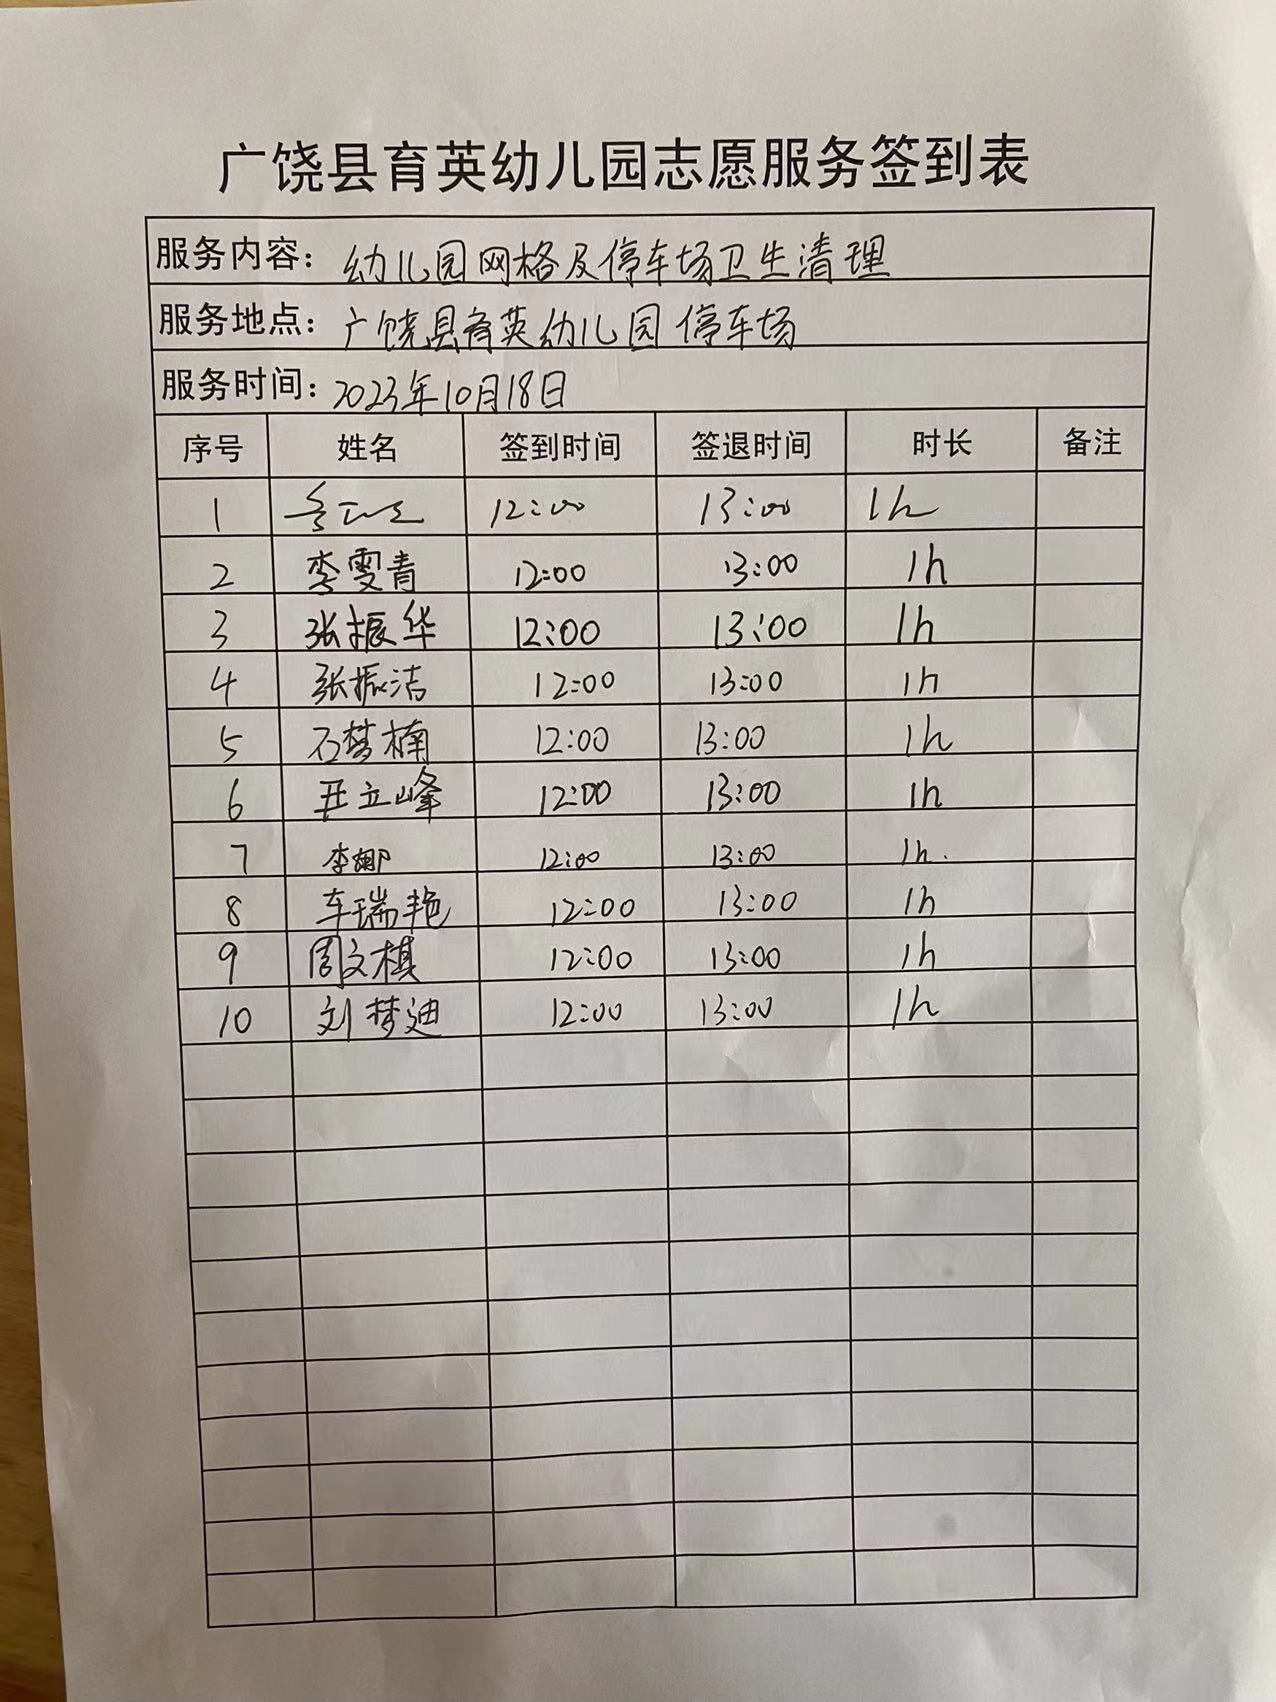 广饶县育英幼儿园志愿服务签到表
服务内容：幼儿园网格及停车场卫生清理
服务地点：广饶县育英幼儿园停车场
服务时间：2023年10月18日
序号 姓名 签到时间 签退时间 时长 备注
1 12:00 13:00 1h
2 李雯青 12:00 13:00 1h
3 张振华 12:00 13:00 1h
4 张振洁 12:00 13:00 1h
5 石梦楠 12:00 13:00 1h
6 立峰 12:00 13:00 1h
7 李娜 12:00 13:00 1h.
8 车瑞艳 12:00 13:00 1h
9 周文棋 12:00 13:00 1h
10 刘梦迪 12:00 13:00 1h